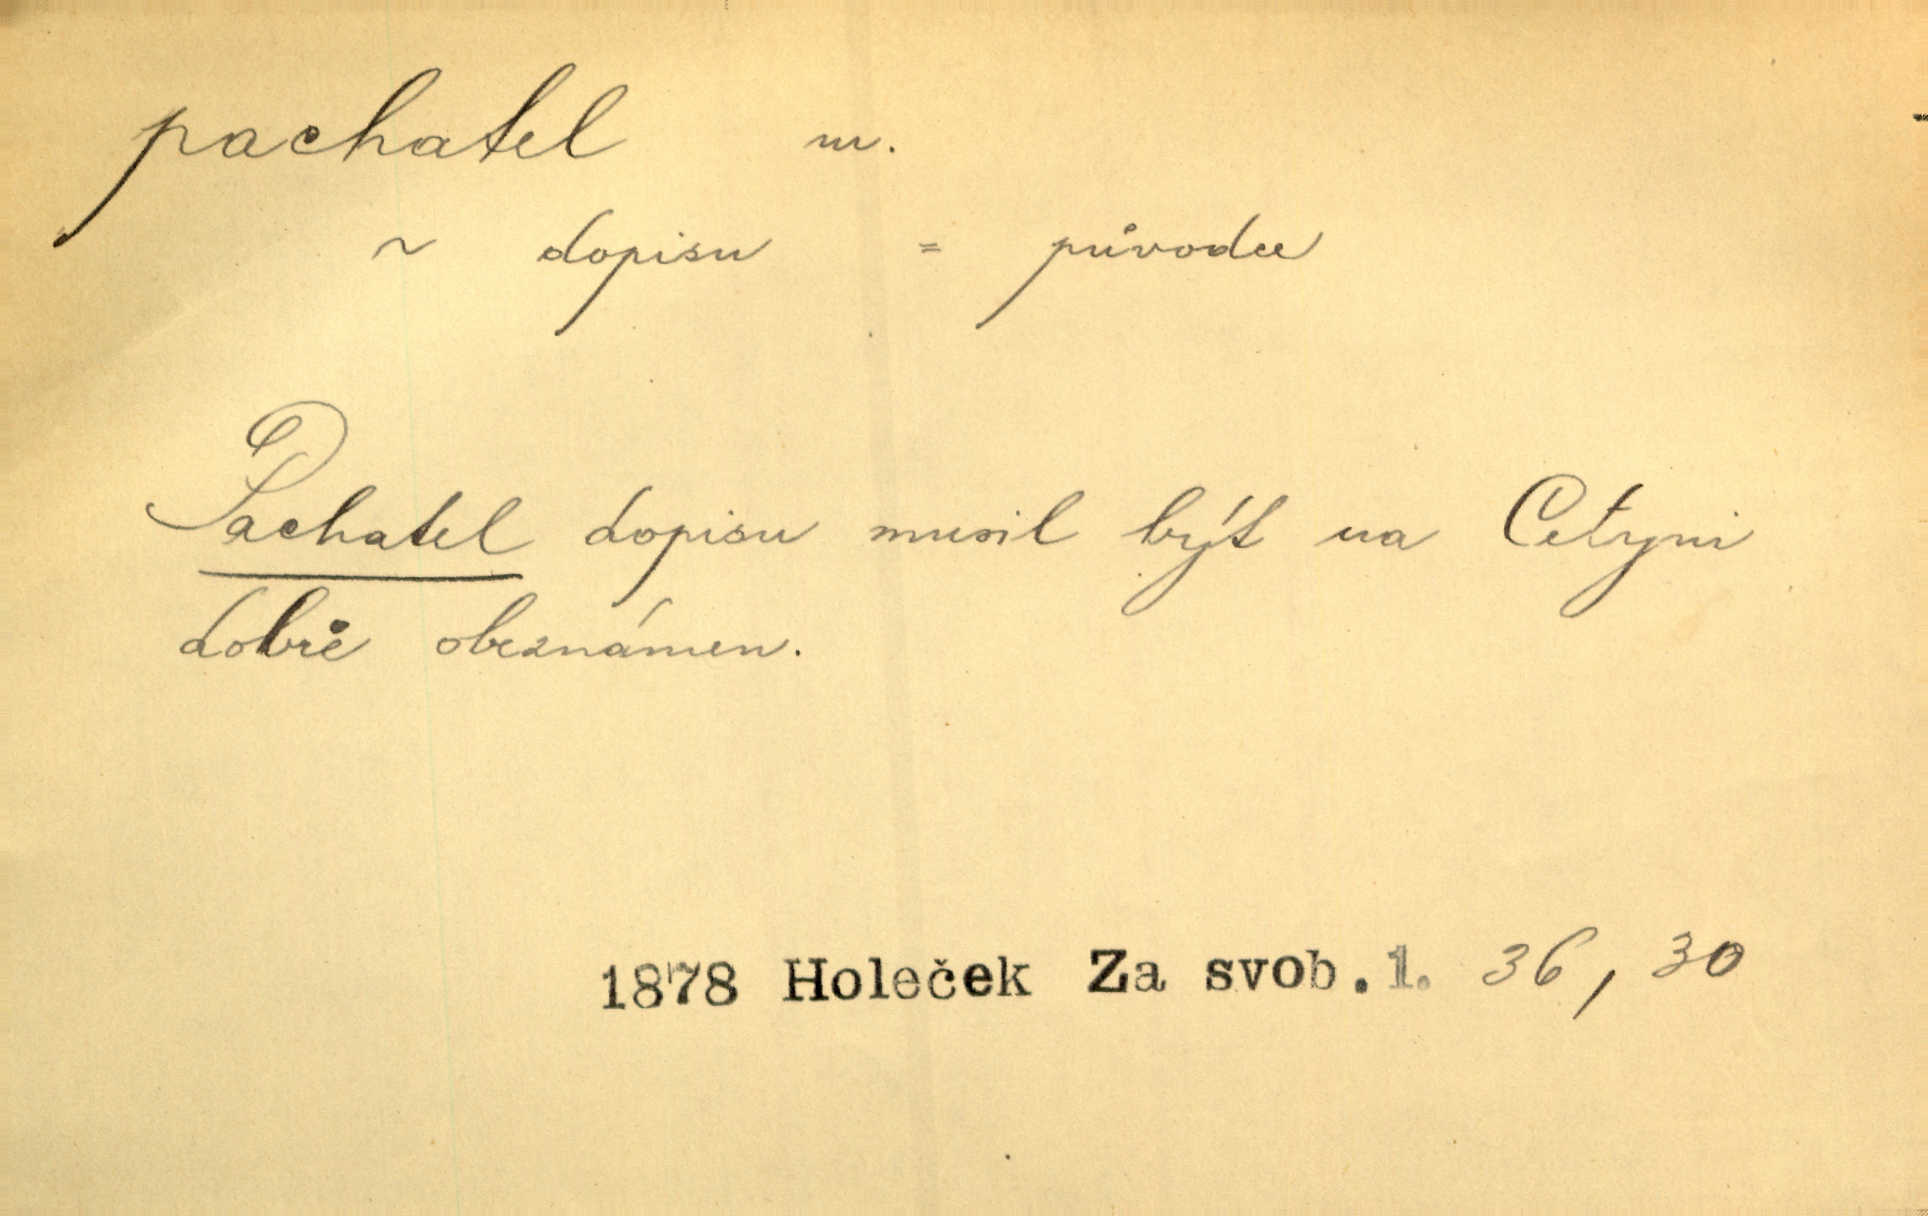 pachatel m.
~ dopisu = původce
Pachatel dopisu musil být na Cetyni
dobře obeznámen.
1878 Holeček Za svob.1. 36, 30